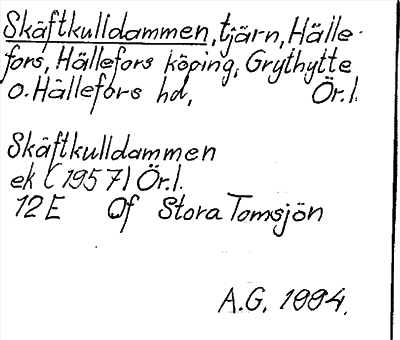 Skäftkulldammen, tjärn, Hälle-
fors, Hällefors köping, Grythytte
o. Hällefors hd, Ör.l.
Skäftkulldammen
ek (1957) Ör.l.
12E Of Stora Tomsjön
A.G. 1994.